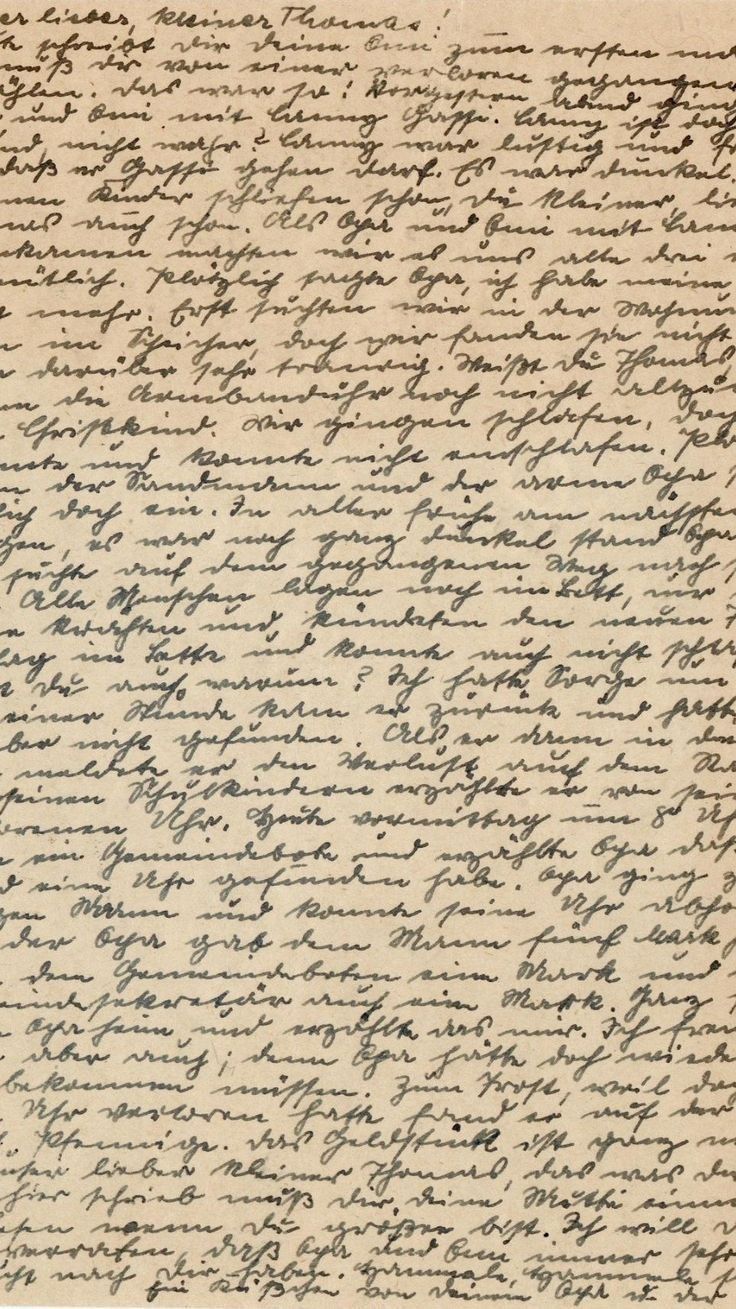 er lieber, kleiner Thomas!
te schreibt Dir Deine Omi zum ersten ma
muß dir von einer verloren gegangen
ählen. Das war so! Vorgestern Abend ging
und Omi mit Lanny Gassi. Lanny ist doch
und, nicht wahr? Lanny war lustig und f
daß er Gassi gehen darf. Es war dunkel.
nen Kinder schliefen schon, Du kleiner, lie
mas auch schon. Als Opa und Omi mit Lan
kamen machten wir es uns alle drei
mütlich. Plötzlich sagte Opa, ich habe meine
t mehr. Erst suchten wir in der Wohnu
n im Speicher, doch wir fanden sie nicht
n darüber sehr traurig. Weißt Du Thomas,
die Armbanduhr noch nicht allzu
Christkind. Wir gingen schlafen, doch
nnte und konnte nicht einschlafen. Plö
m der Sandmann und der arme Opa
lich doch ein. In aller Frühe am nächsten
gen, es war noch ganz dunkel stand Opa
suchte auf dem gegangenen Weg nach s
Alle Menschen lagen noch im Bett, nur
e krähten und kündeten den neuen T
lag im Bette und konnte auch nicht schla
t Du auch warum? Ich hatte Sorge um
einer Stunde kam er zurück und hatt
ber nicht gefunden. Als er dann in die
meldete er den Verlust auf dem Ra
seinen Schulkindern erzählte er von sei
orenen Uhr. Heute vormittag um 8 Uh
ein Gemeindebote und erzählte Opa daß
d eine Uhr gefunden habe. Opa ging z
gen Mann und konnte seine Uhr abho
der Opa gab dem Mann fünf Mark
dem Gemeindeboten eine Mark und
eindesekretär auch eine Mark. Ganz
Opa heim und erzählte das mir. Ich freu
aber auch; denn Opa hätte doch wiede
bekommen müssen. Zum Trost, weil doch
Uhr verloren hatte fand er auf der
Pfennige. Das Geldstück ist ganz
lieber kleiner Thomas, das was Dir
hier schrieb muß Dir Deine Mutti einm
esen wenn Du größer bist. Ich will D
verraten, daß Opa und Omi immer sehr
cht nach Dir haben.
Ein Küßchen von Deinem Opa u. der